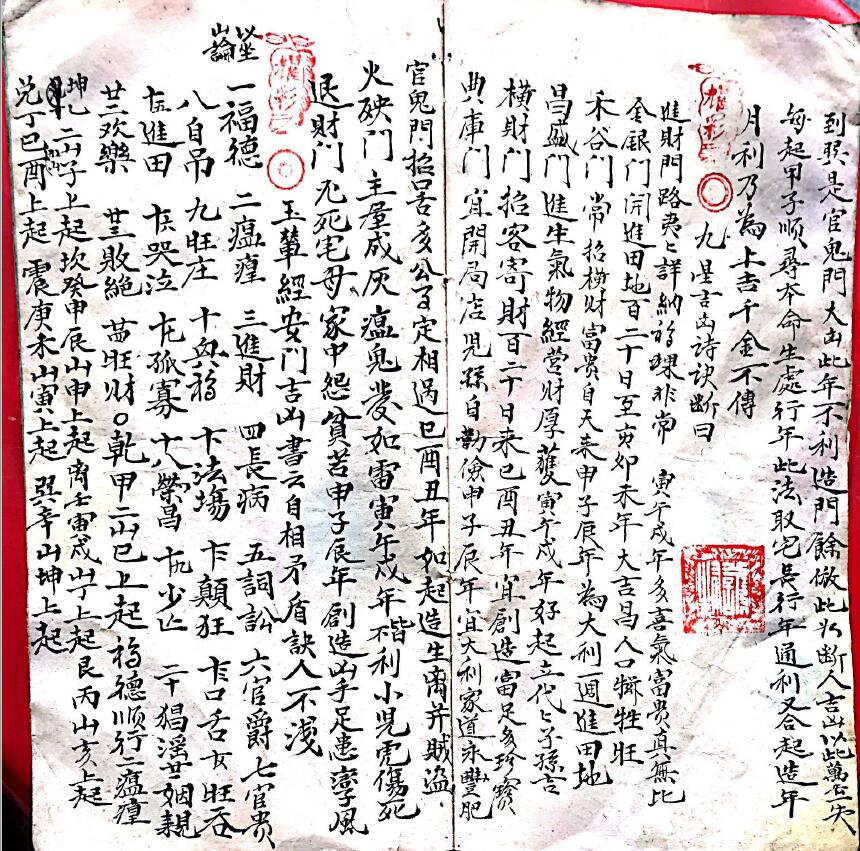 到巽是官鬼門大凶此年不利造門餘倣此断人吉凶以此萬古一失
每起甲子順尋本命生處行年此法取宅長行年通利又合起造年
月利乃為上吉千金不傳
九星吉凶詩訣斷曰
進財門路要詳納福祿非常 寅午戌年多喜氣富貴真無比
金銀门開進田地百二十日至亥卯未年大吉昌人口犠牲旺
禾谷门常招横財富貴自天来申子辰年為大利一週進田地
昌盛门進生氣物經营財厚獲寅午戌年好起立代代子孫吉
横財门招客寄財百二十日来巳酉丑年宜創造富足多珍寶
典庫门宜開局店兒孫自勤儉申子辰年宜大利家道永豐肥
官鬼門招口舌多公子定相遇巳酉丑年如起造生离并賊盗
火殃门主屋成灰瘟鬼發如雷寅午戌年不利小児虎傷死
退財门尤死宅母家中怨貧苦申子辰年創造凶手足患孿风
玉輦經安门吉凶書云自相矛盾訣人不浅
以坐山論
一福德 二瘟㾮 三進財 四長病 五詞訟 六官爵 七官貴
八自吊 九旺庄 十興福 十一法場 十二顛狂 十三口舌 十四旺蚕
十五進田 十六哭泣 十七孤寡 十八榮昌 十九少亡 二十猖淫 廿一姻親
廿二欢樂 廿三敗絕 廿四旺财○乾甲二山巳上起福德顺行二瘟㾮
坤乙二山子上起坎癸申辰山申上起离壬寅戌山上起艮丙山亥上起
兑丁巳酉上起 震庚未山寅上起 巽辛山坤上起